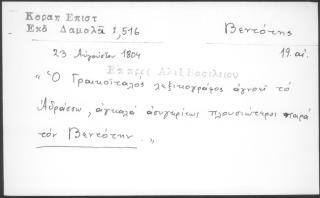 Κοραπ Επιστ
Εκδ Δαμαλᾶ 1,516
Βεντότης
23 Αὐγούστου 1804
19. αἰ.
Ἐπ πρὸς Ἀλεξ Βασιλείου
"Ὁ Γραικοϊταλός λεξικογράφος ἀγνοεῖ τό
ἀγκαλά ἀσυγκρίτως πλουσιώτερος παρά
τόν Βεντότην."